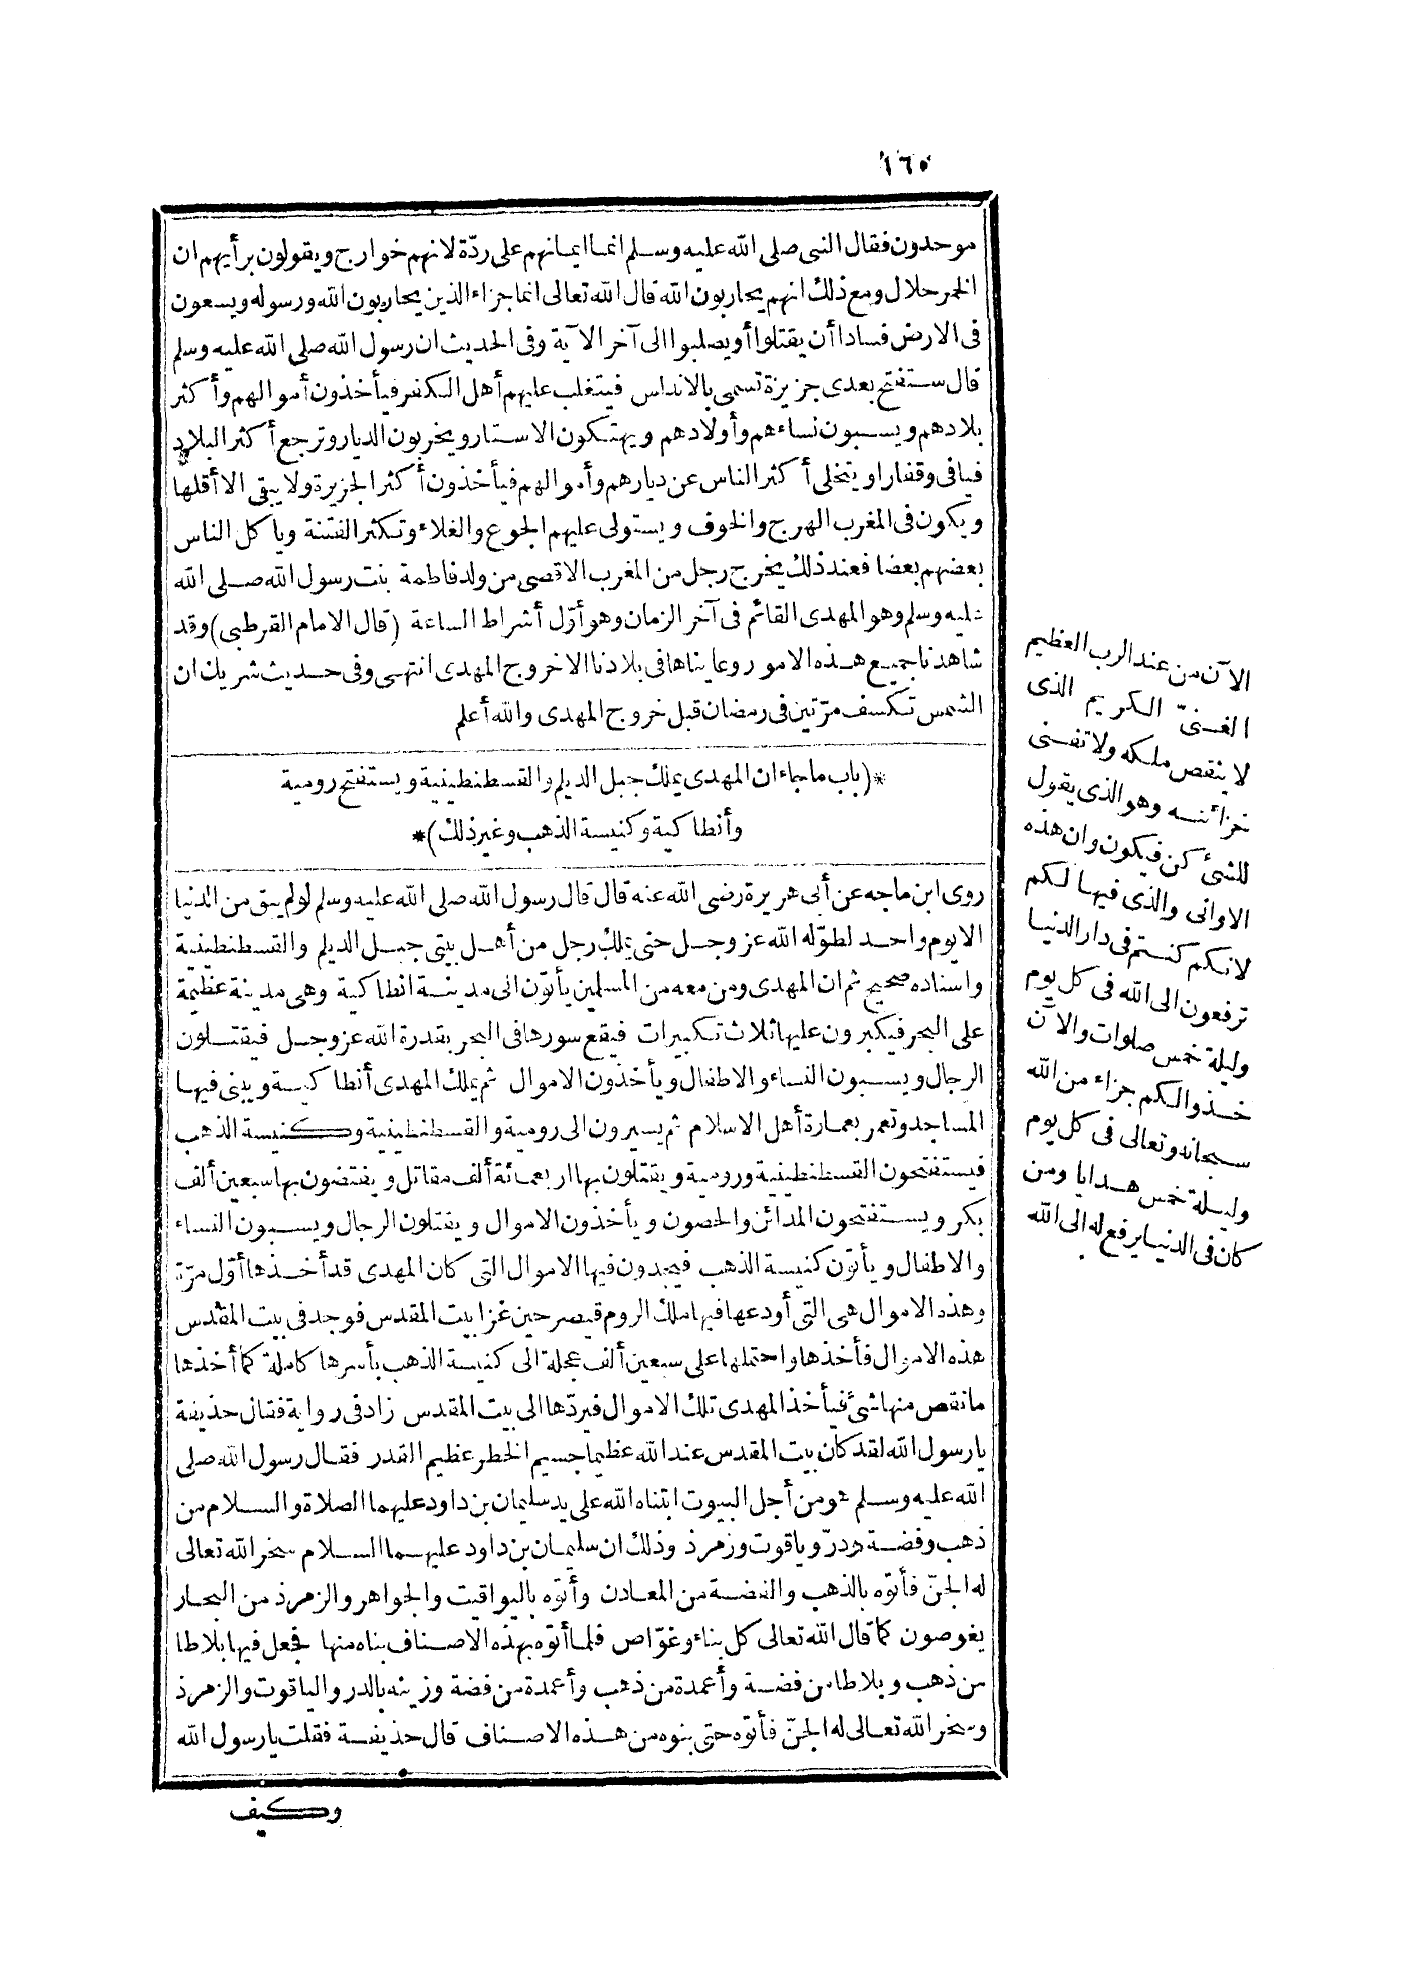 ١٦٥
موحدون فقال النبى صلى الله عليه وسلم انما ايمانهم على ردّة لانهم خوارج ويقولون برأيهم ان
الخمر حلال ومع ذلك انهم يحاربون الله قال الله تعالى انما جزاء الذين يحاربون الله ورسوله ويسعون
فى الارض فسادا أن يقتلوا أو يصلبوا الى آخر الآية وفى الحديث ان رسول الله صلى الله عليه وسلم
قال ستفتح بعدى جزيرة تسمى بالاندلس فيتغلب عليهم أهل الكفر فيأخذون أموالهم وأكثر
بلادهم ويسبون نساءهم وأولادهم ويهتكون الاستار ويخربون الديار وترجع أكثر البلاد
فيافى وقفارا ويتخلى أكثر الناس عن ديارهم وأموالهم فيأخذون أكثر الجزيرة ولا يبقى الا أقلها
ويكون فى المغرب الهرج والخوف ويستولى عليهم الجوع والغلاء وتكثر الفتنة ويأكل الناس
بعضهم بعضا فعند ذلك يخرج رجل من المغرب الاقصى من ولد فاطمة بنت رسول الله صلى الله
عليه وسلم وهو المهدى القائم فى آخر الزمان وهو أوّل أشراط الساعة (قال الامام القرطبى) وقد
شاهدنا جميع هذه الامور وعايناها فى بلادنا الا خروج المهدى انتهى وفى حديث شريك ان
الشمس تكسف مرّتين فى رمضان قبل خروج المهدى والله أعلم
*(باب ما جاء ان المهدى يملك جبل الديلم والقسطنطينية ويستفتح رومية
وأنطاكية وكنيسة الذهب وغير ذلك)*
روى ابن ماجه عن أبى هريرة رضى الله عنه قال قال رسول الله صلى الله عليه وسلم لو لم يبق من الدنيا
الا يوم واحد لطوّله الله عز وجل حتى يملك رجل من أهل بيتى جبل الديلم والقسطنطينية
واسناده صحيح ثم ان المهدى ومن معه من المسلمين يأتون الى مدينة انطاكية وهى مدينة عظيمة
على البحر فيكبرون عليها ثلاث تكبيرات فيقع سورها فى البحر بقدرة الله عز وجل فيقتلون
الرجال ويسبون النساء والاطفال ويأخذون الاموال ثم يملك المهدى أنطاكية ويبنى فيها
المساجد وتعمر بعمارة أهل الاسلام ثم يسيرون الى رومية والقسطنطينية وكنيسة الذهب
فيستفتحون القسطنطينية ورومية ويقتلون بها اربعمائة ألف مقاتل ويفتضون بها سبعين ألف
بكر ويستفتحون المدائن والحصون ويأخذون الاموال ويقتلون الرجال ويسبون النساء
والاطفال ويأتون كنيسة الذهب فيجدون فيها الاموال التى كان المهدى قد أخذها أوّل مرّة
وهذه الاموال هى التى أودعها فيها ملك الروم قيصر حين غزا بيت المقدس فوجد فى بيت المقدس
هذه الاموال فأخذها واحتملها على سبعين ألف عجلة الى كنيسة الذهب بأسرها كاملة كما أخذها
ما نقص منها شئ فيأخذ المهدى تلك الاموال فيردّها الى بيت المقدس زاد فى رواية فقال حذيفة
يا رسول الله لقد كان بيت المقدس عند الله عظيما جسيم الخطر عظيم القدر فقال رسول الله صلى
الله عليه وسلم هو من أجل البيوت ابتناه الله على يد سليمان بن داود عليهما الصلاة والسلام من
ذهب وفضة ودرّ وياقوت وزمرذ وذلك ان سليمان بن داود عليهما السلام سخر الله تعالى
له الجنّ فأتوه بالذهب والفضة من المعادن وأتوه باليواقيت والجواهر والزمرذ من البحار
يغوصون كما قال الله تعالى كل بناء وغوّاص فلما أتوه بهذه الاصناف بناه منها فجعل فيها بلاطا
من ذهب وبلاطا من فضة وأعمدة من ذهب وأعمدة من فضة وزينه بالدر والياقوت والزمرذ
وسخر الله تعالى له الجنّ فأتوه حتى بنوه من هذه الاصناف قال حذيفة فقلت يا رسول الله
وكيف
الآن من عند الرب العظيم
الغنىّ الكريم الذى
لا ينقص ملكه ولا تفنى
خزائنه وهو الذى يقول
للشئ كن فيكون وان هذه
الاوانى والذى فيها لكم
لانكم كنتم فى دار الدنيا
ترفعون الى الله فى كل يوم
وليلة خمس صلوات والآن
خذوا لكم جزاء من الله
سبحانه وتعالى فى كل يوم
وليلة خمس هدايا ومن
كان فى الدنيا يرفع له الى الله